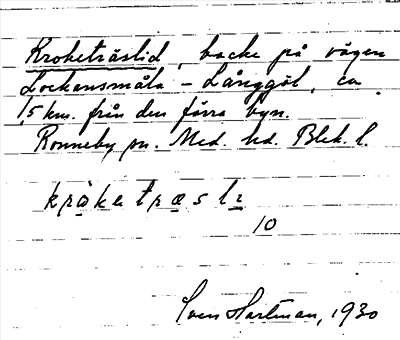 Kroketräslid, backe på vägen
Lockansmåla - Långgöl, ca
1,5 km. från den förra byn.
Ronneby sn. Med. hd. Blek. l.
kråketræsli
10
Sven Hartman, 1930